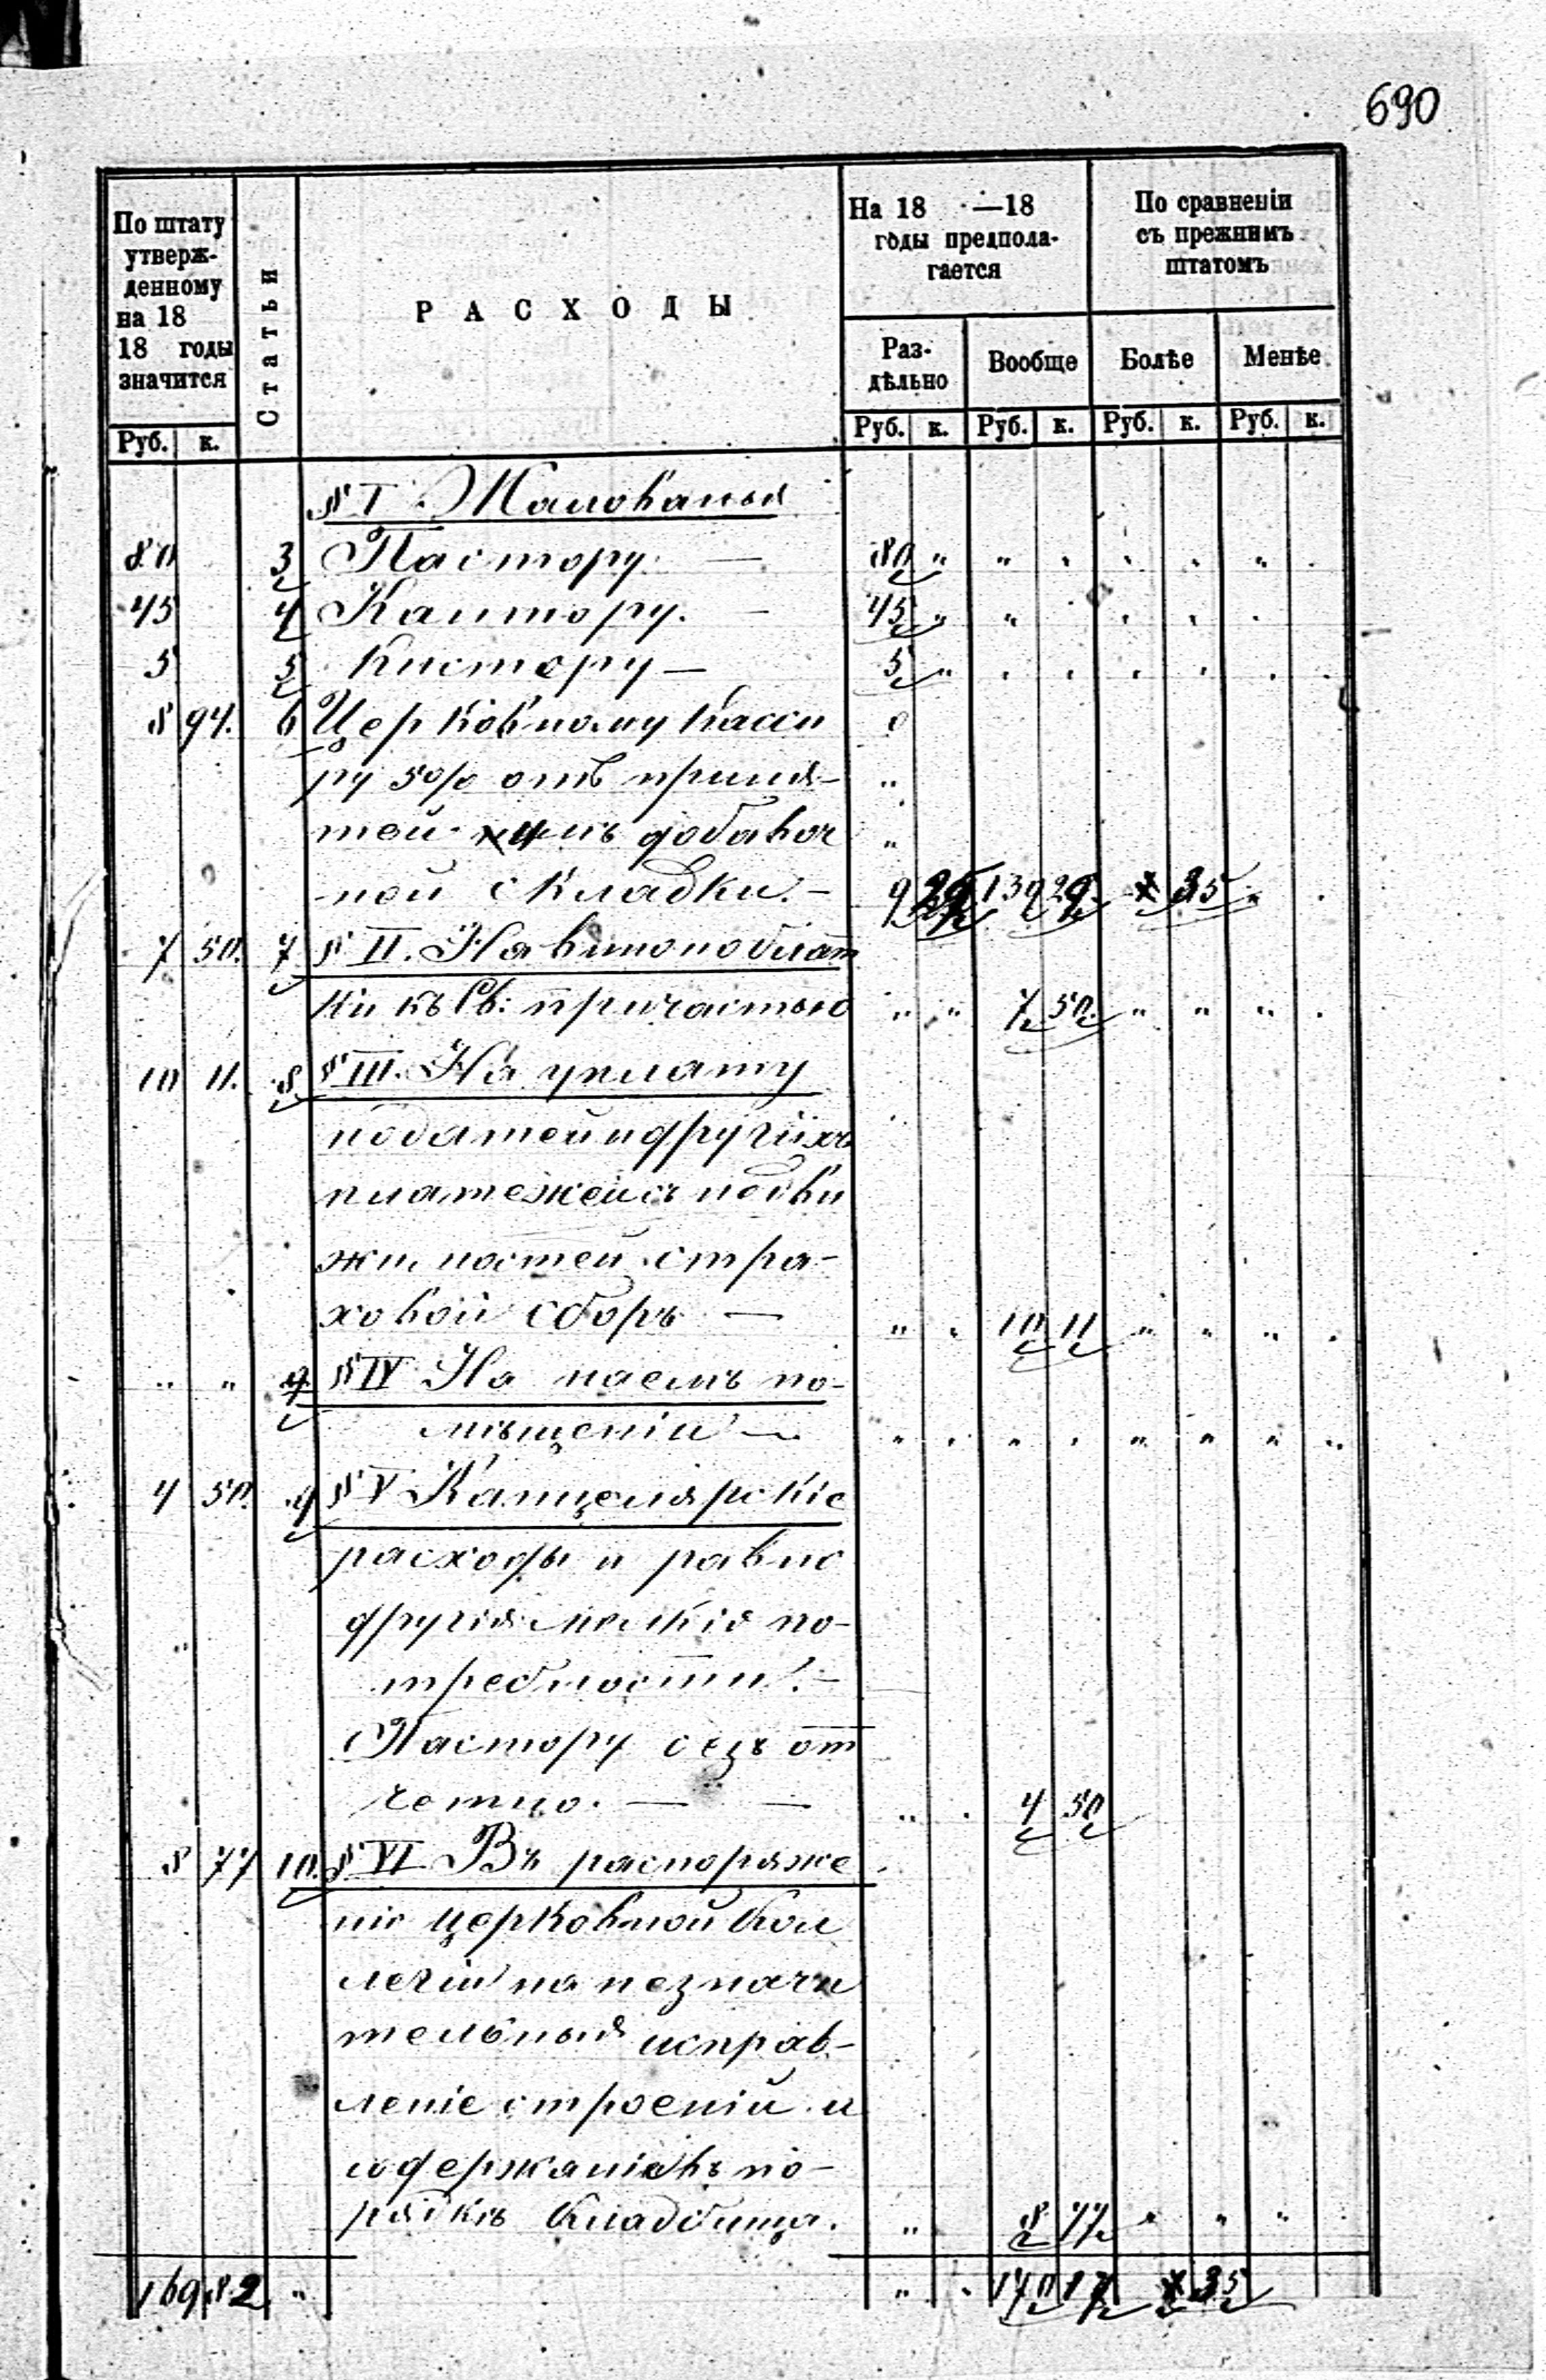 690
По штату утверж- денному на 18 18 годы значится
Статьи
РАСХОДЫ
На 18 —18 годы предпола- гается
По сравненіи съ прежнимъ штатомъ
Раз- дѣльно
Вообще
Болѣе
Менѣе
Руб. к. Руб. к. Руб. к. Руб. к. Руб. к.
§ I Жалованья
80 3 Пастору. — 80 „ „ „ „ „ „ „
45 4 Кантору. — 45 „ „ „ „ „ „
5 5 Кистору — 5 „ „ „ „ „ „ „
8 94. 6 Церковному касси
ру 5% отъ приня- „
той имъ добавоч „
ной складки. — 9 29 139 29. 35 „
7 50. 7 § II. На вино и облат
ки къ Св: причастью „ „ 7 50. „ „ „ „
10 11. 8 § III. На уплату
податей и другихъ
платежей съ недви
жимостей стра-
ховой сборъ — „ „ 10 11 „ „ „ „
„ „ 9. § IV На наемъ по-
мѣщенія — „ „ „ „ „ „ „ „
4 50. 9 § V Канцелярскіе
расходы и равно
другія мелкія по-
требности. —
Пастору безъ от
четно. — — „ „ 4 50
8 77 10. § VI Въ распоряже
ніе церковной Кол
легіи на незначи
тельныя исправ-
леніе строеній и
содержаніе въ по-
рядкѣ кладбища. „ 8 77 „ „ „ „
169 82 „ „ „ 170 17 35